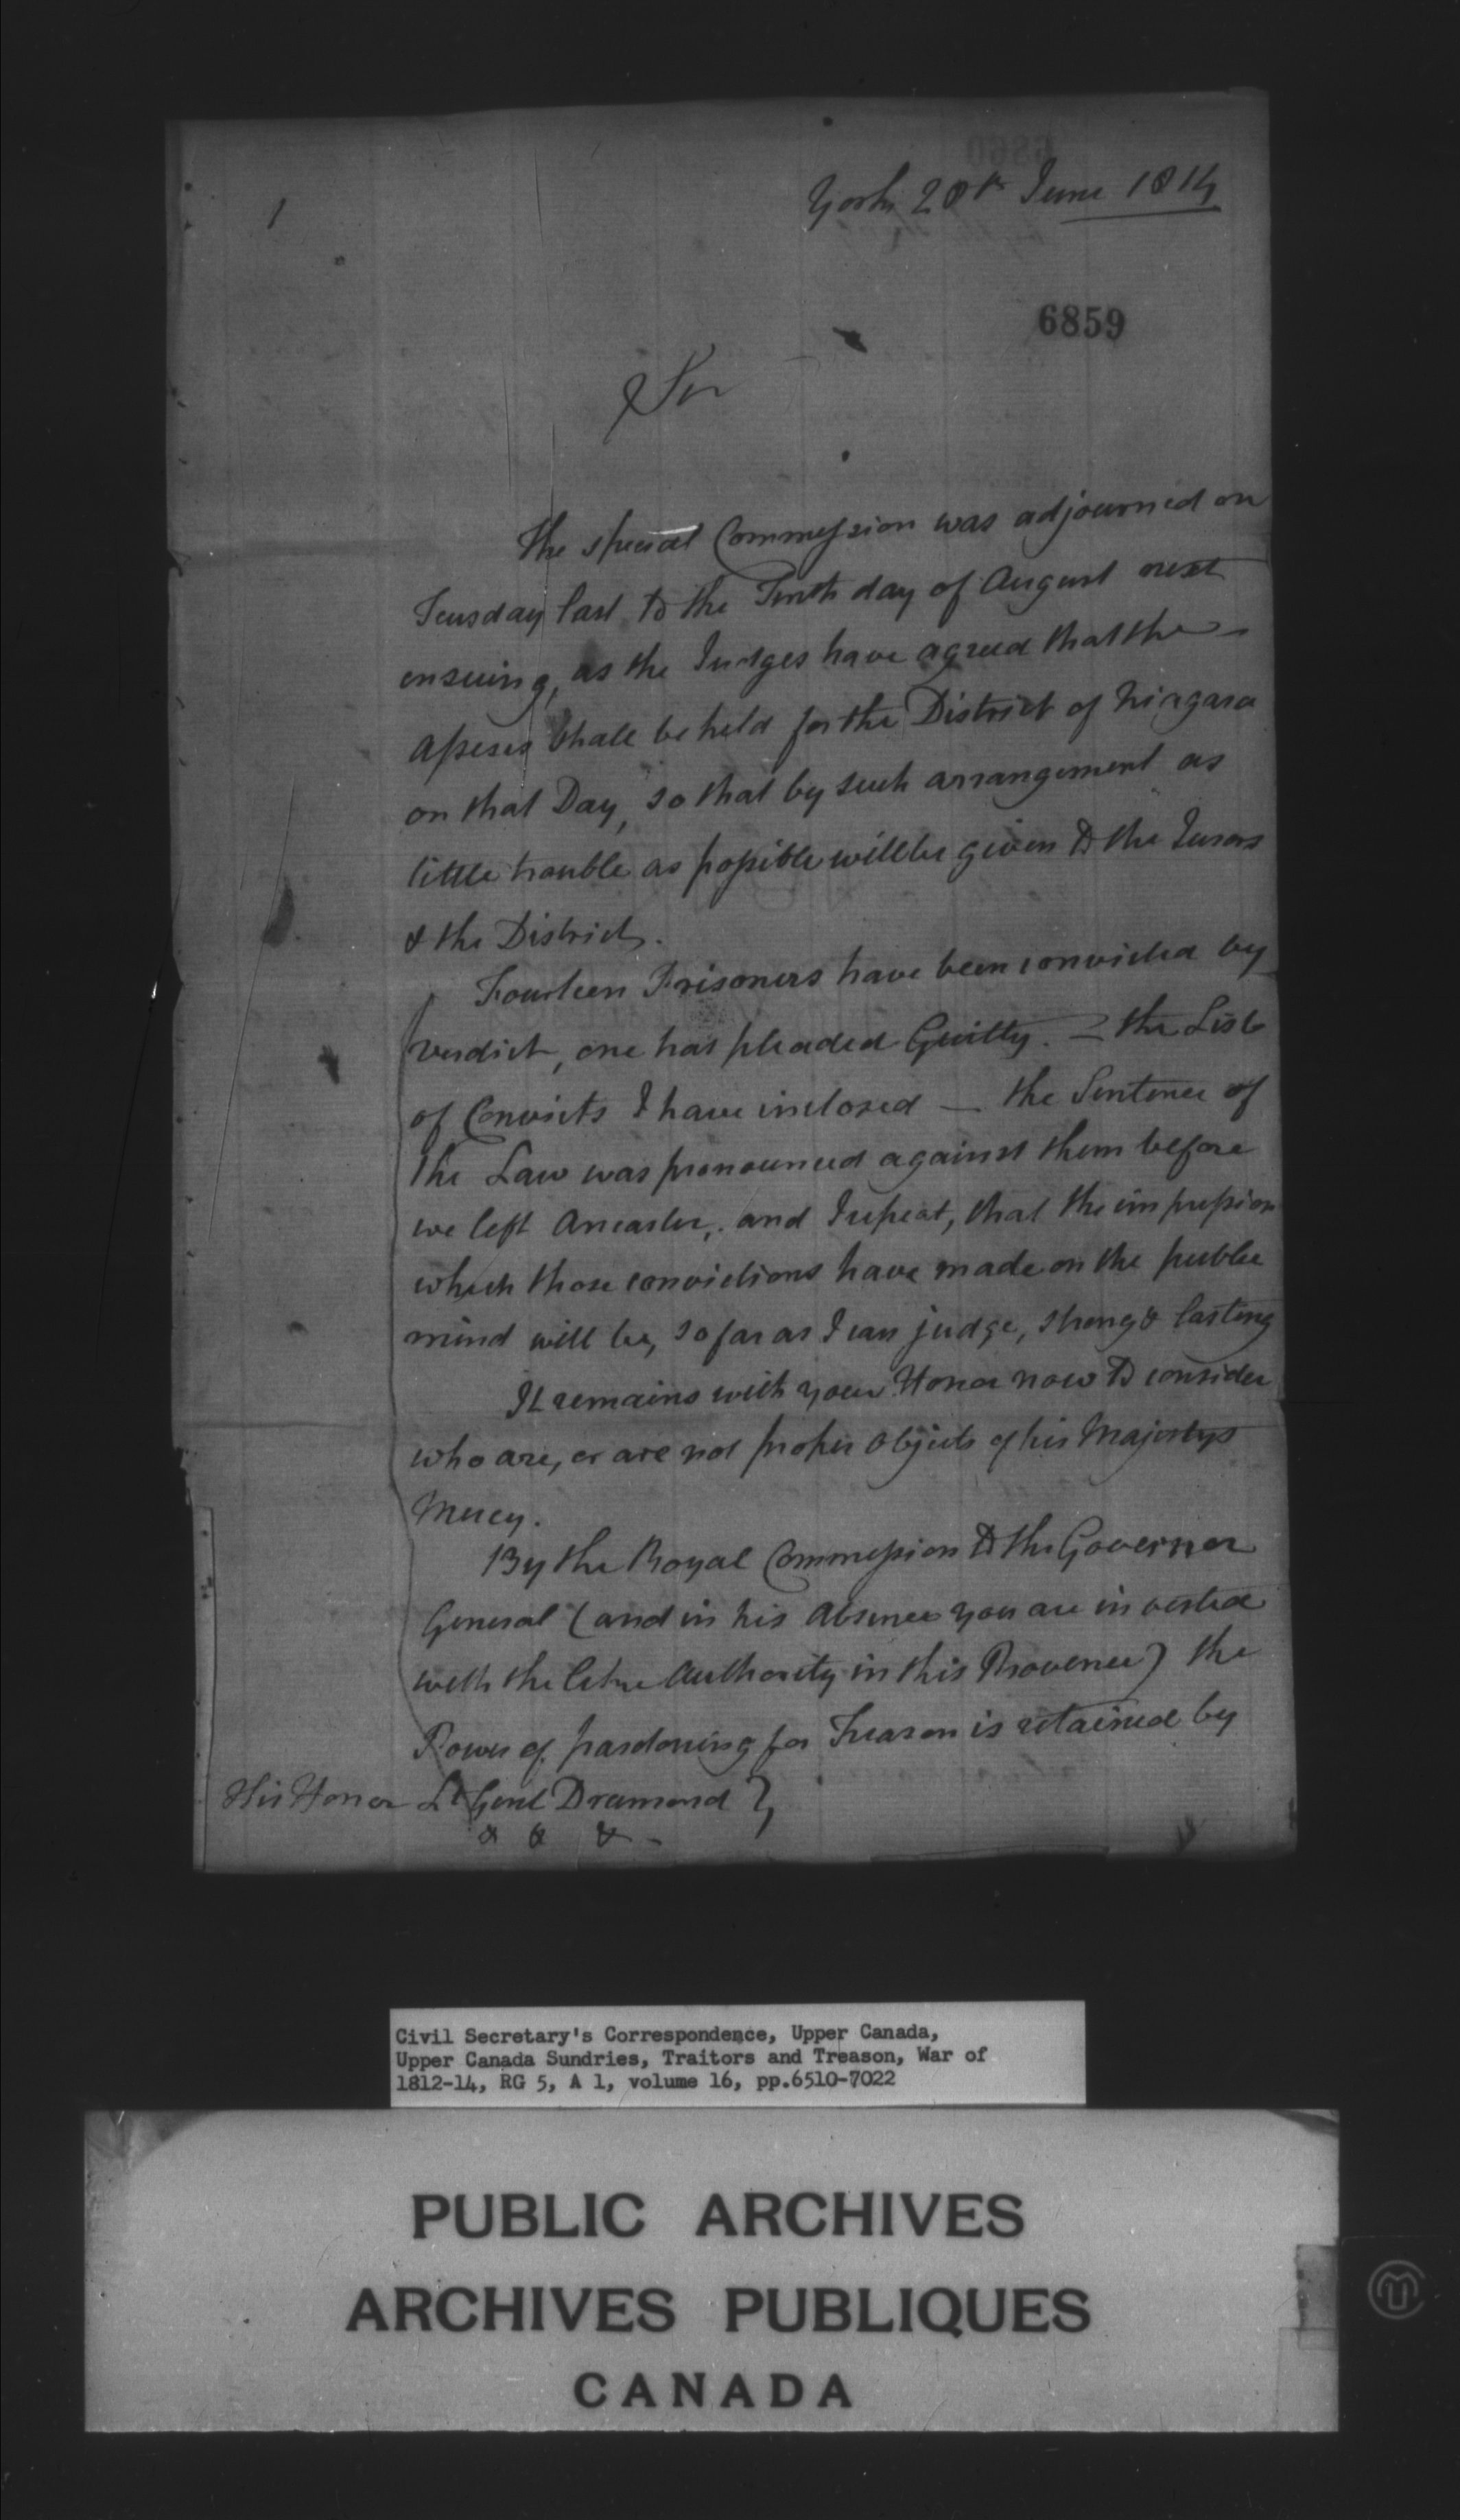 1
York 28th June 1814
6859
Sir
The special Commission was adjourned on
Teusday last to the Tenth day of August next
ensuing, as the Judges have agreed that the
asseses shall be held for the District of Niagara
on that Day, so that by such arrangement as
little trouble as possible will be given to the Jurors
& the District.
Fourteen Prisoners have been convicted by
verdict, one has pleaded Guilty. — the List
of Convicts I have inclosed — the Sentence of
the Law was pronounced against them before
we left Ancaster, and I repeat, that the impression
which those convictions have made on the public
mind will be, so far as I can judge, strong & lasting
It remains with your Honor now to consider
who are, or are not proper objects of his Majestys
Mercy.
By the Royal Commission to the Governor
General (and in his Absence you are invested
with the like Authority in this Province) the
Power of pardoning for Treason is retained by
His Honor Lt Genl Drumond }
& & & -
Civil Secretary's Correspondence, Upper Canada,
Upper Canada Sundries, Traitors and Treason, War of
1812-14, RG 5, A 1, volume 16, pp.6510-7022
PUBLIC ARCHIVES
ARCHIVES PUBLIQUES
CANADA